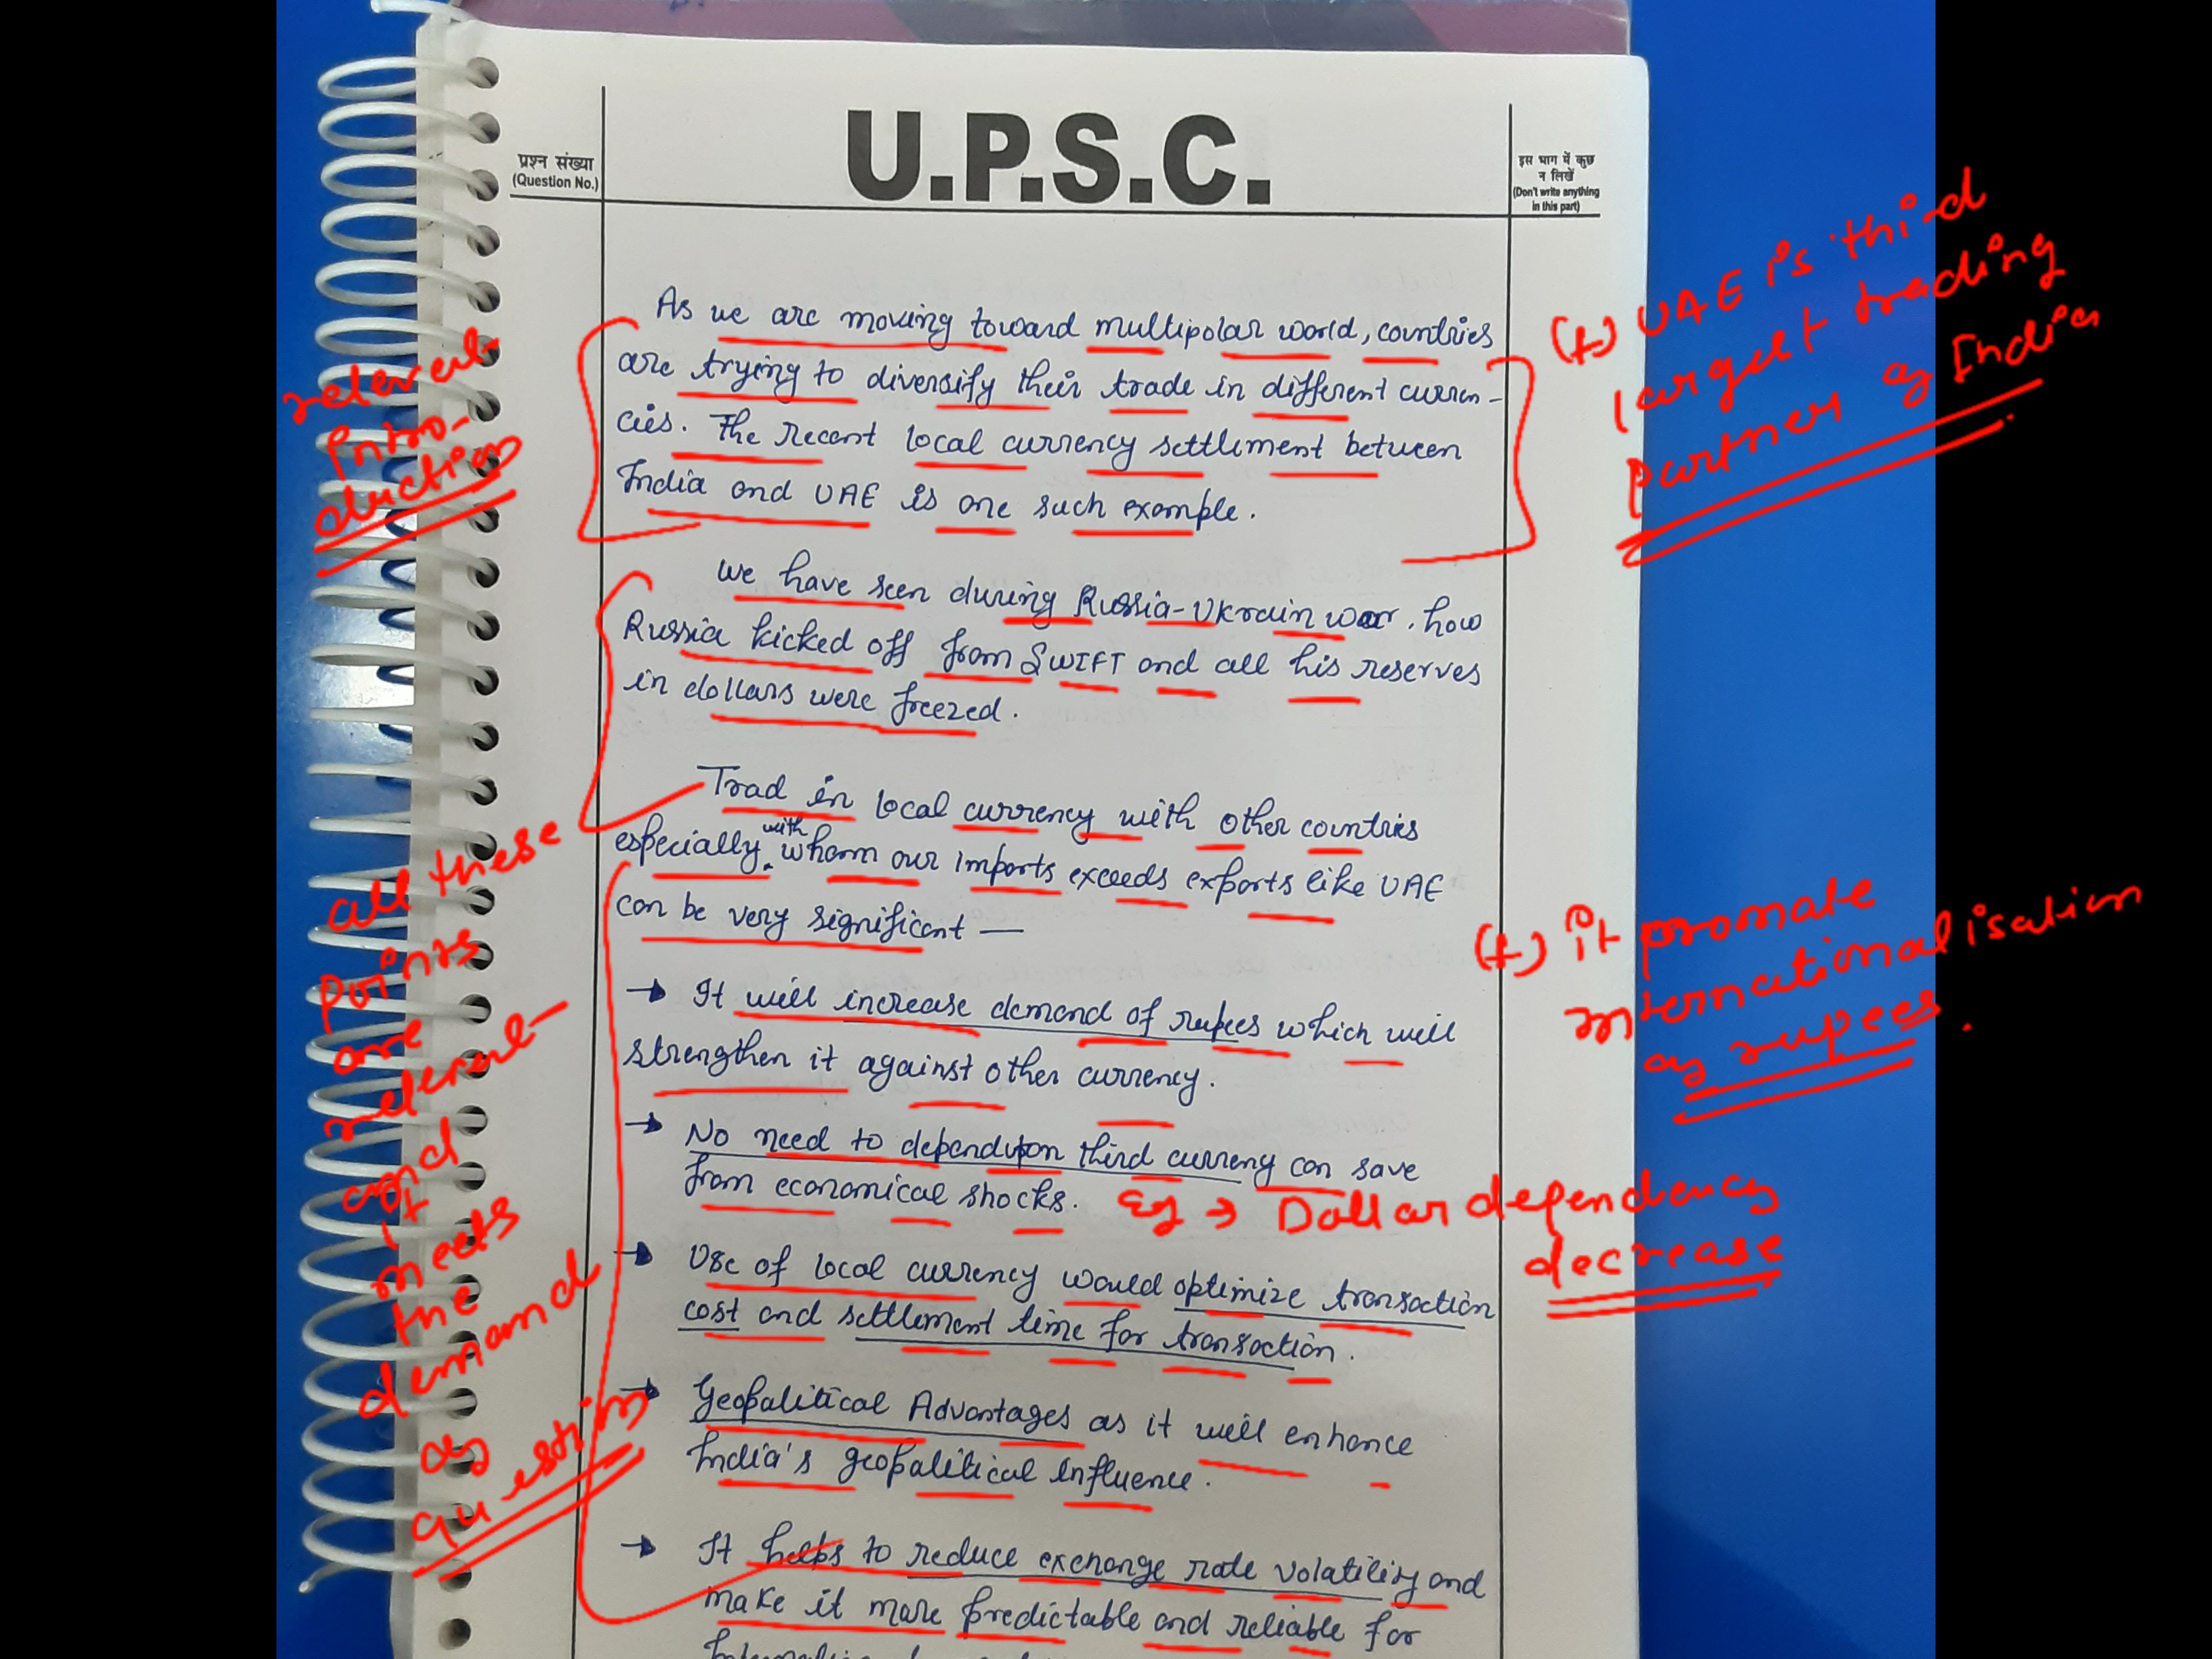 U.P.S.C.
प्रश्न संख्या
(Question No.)
इस भाग में कुछ
न लिखें
(Don't write anything
in this part)
As we are moving toward multipolar world, countries
are trying to diversify their trade in different curren-
cies. The recent local currency settlement between
India and UAE is one such example.
relevent
Intro-
duction
(+) UAE is third
largest trading
partner of India
We have seen during Russia-Ukrain war, how
Russia kicked off from SWIFT and all his reserves
in dollars were freezed.
Trad in local currency with other countries
especially with whom our imports exceeds exports like UAE
can be very significant —
→ It will increase demand of rupees which will
strengthen it against other currency.
→ No need to depend upon third curreny can save
from economical shocks.
Eg → Dollar dependency
decrease
→ Use of local currency would optimize transaction
cost and settlement time for transaction.
→ Geopolitical Advantages as it will enhance
India's geopolitical influence.
→ It helps to reduce exchange rate volatility and
make it more predictable and reliable for
all these
points
are
relevent
and
it
meets
the
demand
of
question
(+) it promote
internationalisation
of rupees.